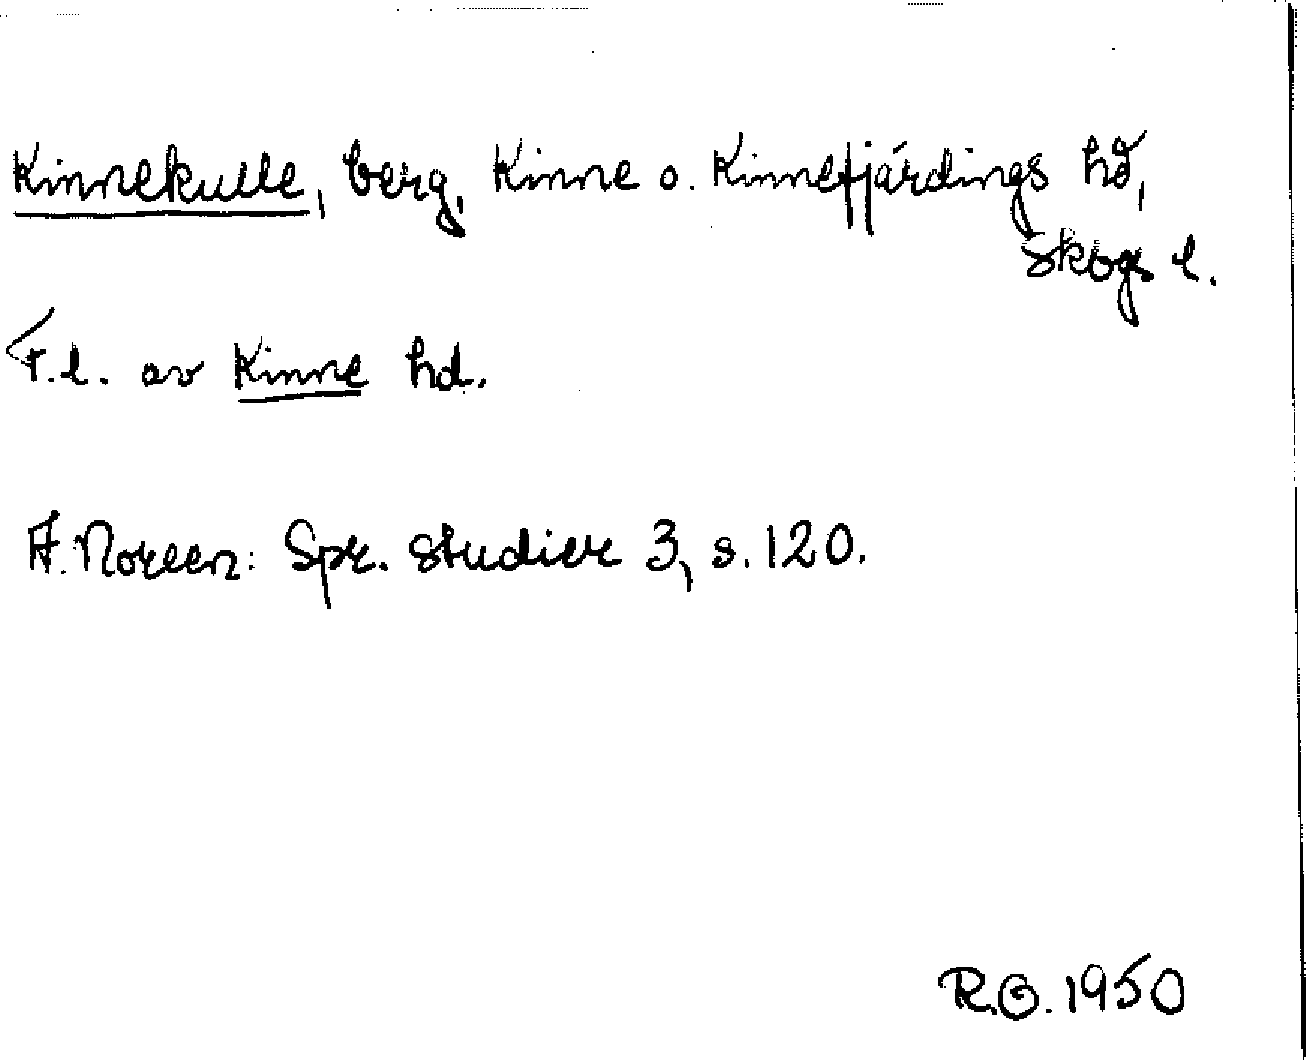 Kinnekulle, berg, Kinne o. Kinnefjärdings hd,
Skbgs l.
F.l. av Kinne hd.
A. Noreen: Spr. studier 3, s. 120.
R.O. 1950